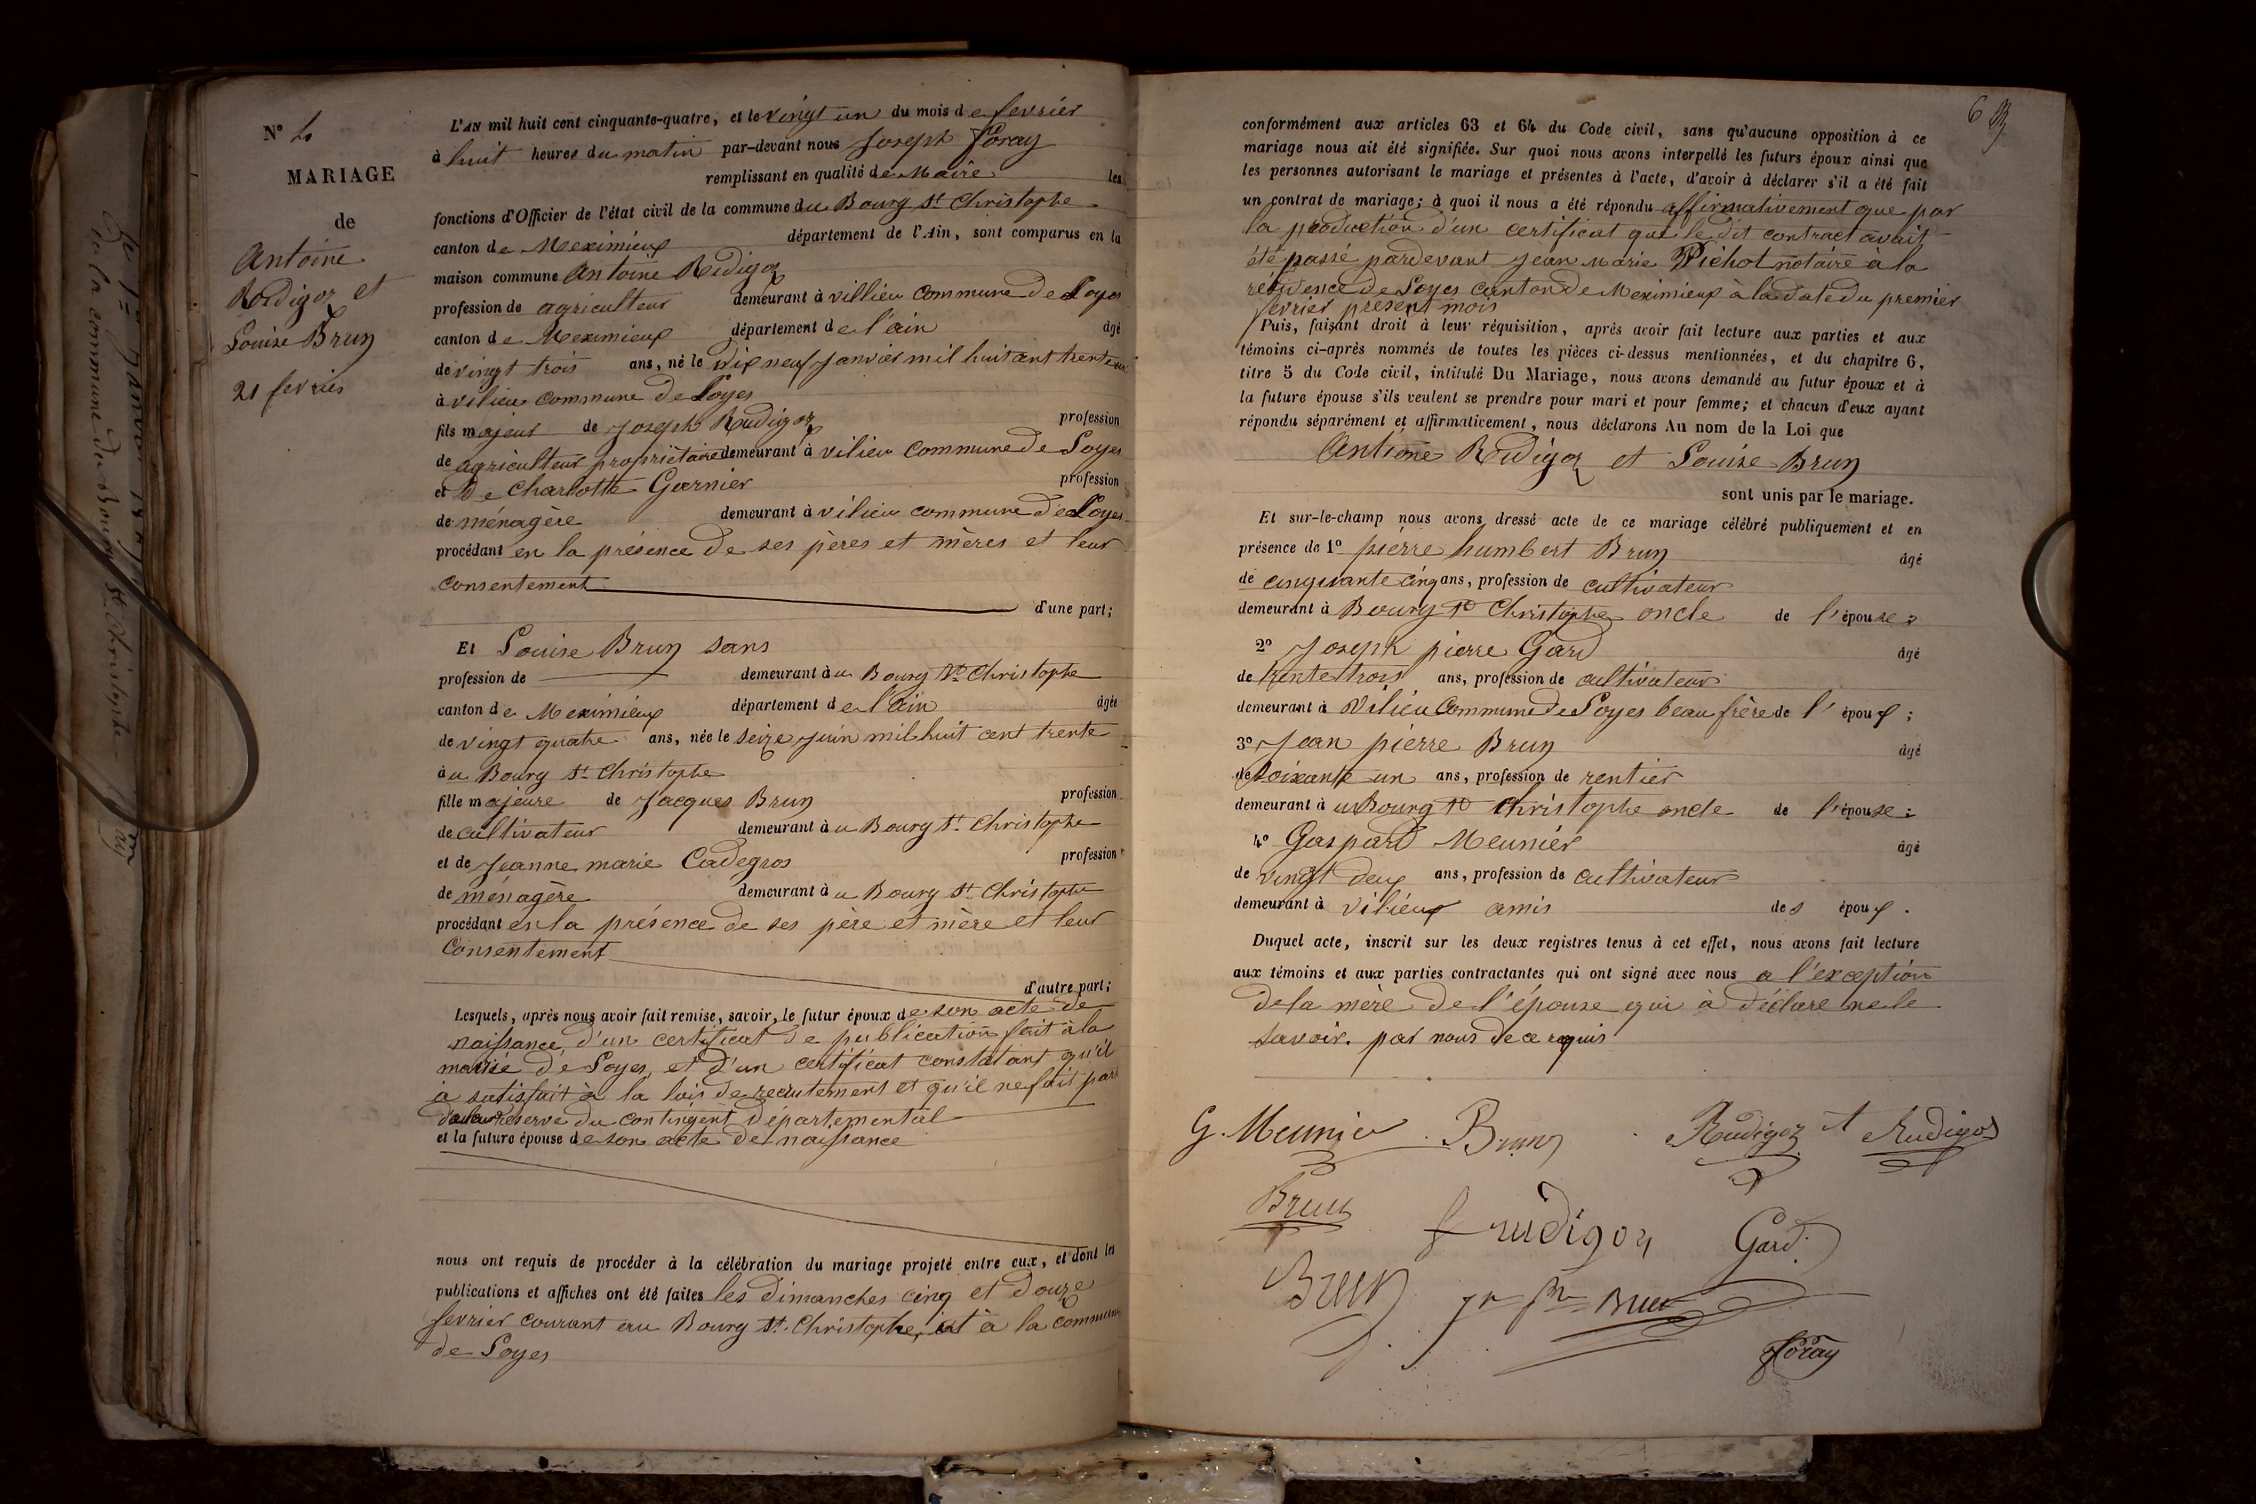 N° 4
MARIAGE
de
Antoine
Rudigoz et
Louise Brun
21 fevrier
L'AN mil huit cent cinquante-quatre, et le vingt un du mois de fevrier
à huit heures du matin par-devant nous Joseph Foray
remplissant en qualité de Maire les
fonctions d'Officier de l'état civil de la commune du Bourg St Christophe
canton de Meximieux département de l'Ain, sont comparus en la
maison commune Antoine Rudigoz
profession de agriculteur demeurant à villieu commune de Loyes
canton de Meximieux département de l'ain âgé
de vingt trois ans, né le Dix neuf janvier mil huit cent trente un
à vilieu commune de Loyes
fils majeur de Joseph Rudigoz profession
de agriculteur propriètaire demeurant à vilieu commune de Loyes
et De Charlotte Garnier profession
de ménagère demeurant à vilieu commune de Loyes
procédant en la présence de ses pères et mères et leur
consentement
d'une part;
Et Louise Brun sans
profession de demeurant à u Bourg St Christophe
canton de Meximieux département de l'ain âgée
de vingt quatre ans, née le seize juin mil huit cent trente
à u Bourg St Christophe
fille majeure de Jacques Brun profession
de cultivateur demeurant à u Bourg St Christophe
et de Jeanne marie Cadegros profession
de ménagère demeurant à u Bourg St Christophe
procédant en la présence de ses père et mère et leur
consentement
d'autre part;
Lesquels, après nous avoir fait remise, savoir, le futur époux de son acte de
naissance d'un certificat de publication fait à la
mairie de Loyes, et d'un certificat constatant qu'il
a satisfait à la lois de recrutement et qu'il ne fait pas
reserve du contingent départemental
et la future épouse de son acte de naissance
nous ont requis de procéder à la célébration du mariage projeté entre eux, et dont les
publications et affiches ont été faites les dimanches cinq et douze
fevrier courant au Bourg St Christophe, et à la commune
de Loyes
6
conformément aux articles 63 et 64 du Code civil, sans qu'aucune opposition à ce
mariage nous ait été signifiée. Sur quoi nous avons interpellé les futurs époux ainsi que
les personnes autorisant le mariage et présentes à l'acte, d'avoir à déclarer s'il a été fait
un contrat de mariage; à quoi il nous a été répondu affirmativement que par
la production d'un certificat que le dit contract avait
été passé pardevant Jean Marie Pichot notaire à la
résidence de Loyes canton de Meximieux à la date du premier
fevrier present mois
Puis, faisant droit à leur réquisition, après avoir fait lecture aux parties et aux
témoins ci-après nommés de toutes les pièces ci-dessus mentionnées, et du chapitre 6,
titre 5 du Code civil, intitulé Du Mariage, nous avons demandé au futur époux et à
la future épouse s'ils veulent se prendre pour mari et pour femme; et chacun d'eux ayant
répondu séparément et affirmativement, nous déclarons Au nom de la Loi que
Antoine Rudigoz et Louise Brun
sont unis par le mariage.
Et sur-le-champ nous avons dressé acte de ce mariage célébré publiquement et en
présence de 1° pierre humbert Brun âgé
de cinquante cinq ans, profession de cultivateur
demeurant à Bourg St Christophe oncle de l'épouse;
2° Joseph pierre Gard âgé
de trente trois ans, profession de cultivateur
demeurant à Vilieu Commune de Loyes beau frère de l'époux;
3° Jean pierre Brun âgé
de soixante un ans, profession de rentier
demeurant à u Bourg St Christophe oncle de l'épouse;
4° Gaspard Meunier âgé
de vingt deux ans, profession de cultivateur
demeurant à vilieux amis des époux.
Duquel acte, inscrit sur les deux registres tenus à cet effet, nous avons fait lecture
aux témoins et aux parties contractantes qui ont signé avec nous a l'exception
de la mère de l'épouse qui à déclare ne le
savoir. par nous de ce requis
G. Meunier Brun Rudigoz A Rudigoz
Brun J rudigoz Gard
Brun Jn pre Brun
Foray